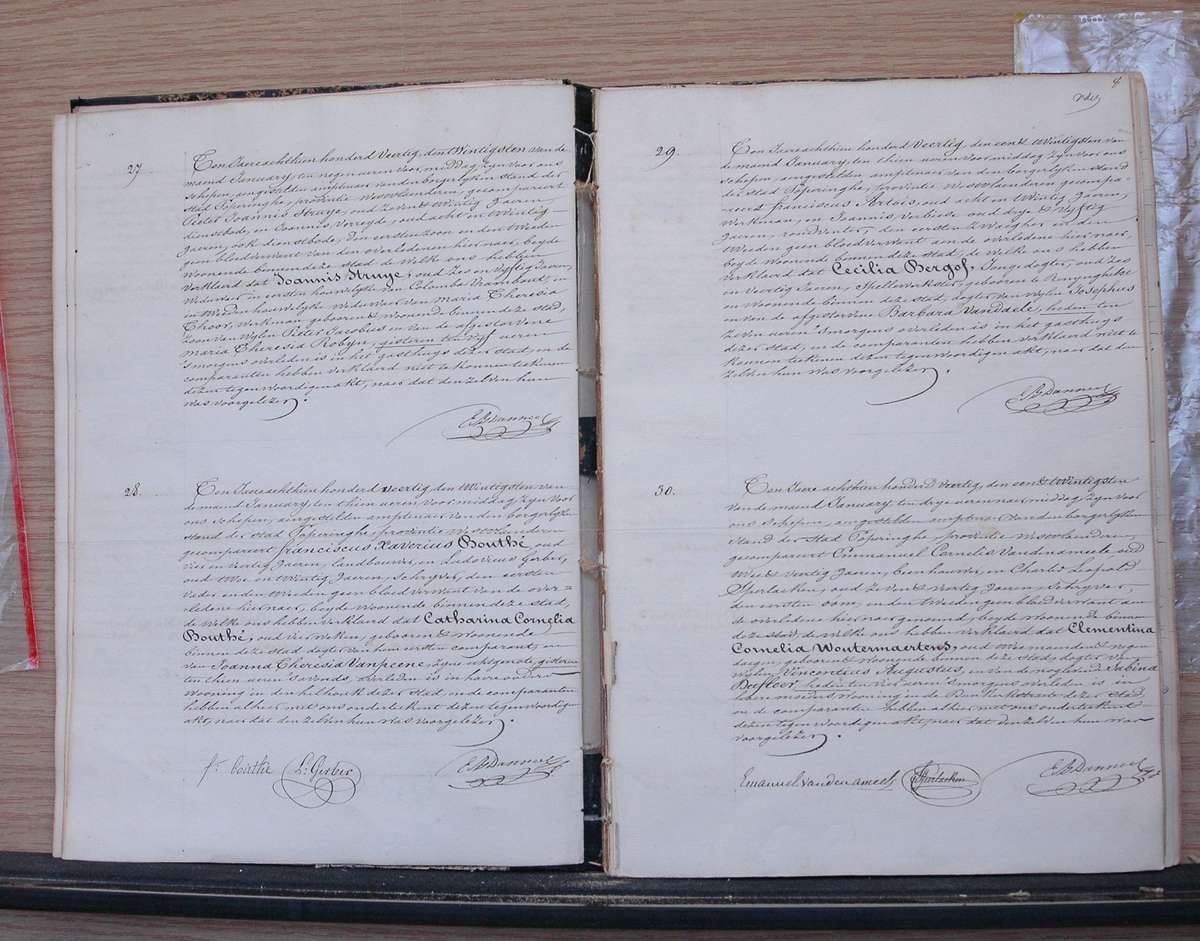 27.
Ten Jaere achthien honderd Veertig, den t Wintigsten van de
maend January, ten negen ueren voor middag zyn voor ons
schepen, aengestelden amptenaer van den borgerlyken stand der
stad Poperinghe, provintie Westvlaenderen, gecompareert
Pieter Joannis Struye, oud Zeven & Wintig Jaeren,
dienstbode, en Joannis Verryde, oud acht en Wintig
Jaeren, ook dienstbode, den eersten zoon en den Weeden
geen bloedverwant van den overledenen hier naer, beyde
Woonende binnen deze stad, de Welke ons hebben
Verklaerd dat Joannis Struye, oud Zes en Vyftig Jaeren,
Weduwaer in eersten houwelyke van Colomba Vrambout, en
in Weeden houwelyke Weduwaer van Maria Theresia
Thoor, Werkman, geboren & Woonende binnen deze stad,
Zoon van Wylen Pieter Jacobus en van de afgestorvene
Maria Theresia Robyn, gisteren ten vyf ueren
's morgens overleden is in het gasthuys dezer stad, en de
comparanten hebben verklaerd niet te konnen teekenen
dezen tegenwoordigen akt, naer dat den zelven hun
Was voorgelezen.
28.
Ten Jaere achthien honderd Veertig, den t Wintigsten van
de maend January, ten thien ueren voor middag zyn voor
ons schepen, aengestelden amptenaer van den borgerlyken
stand der stad Poperinghe, provintie Westvlaenderen
gecompareert Franciscus Xaverius Bouthé, oud
vier en veertig Jaeren, landbouwer, en Ludovicus Gerbier,
oud Wee en Wintig Jaeren, Schryver, den eersten
vader en den Weeden geen bloedverwant van de over-
ledene hier naer, beyde Woonende binnen deze stad,
de Welke ons hebben verklaerd dat Catharina Cornelia
Bouthé, oud vier Weken, geboren & Woonende
binnen deze stad, dogter van hun eersten comparant, en
van Joanna Theresia Vanpeene, zyne echtgenote, gisteren
ten thien ueren 's avonds, overleden is in haere ouders
Wooning in den helhoek dezer stad, en de comparanten
hebben alhier met ons onderteekent dezen tegenwoordigen
akt, naer dat den zelven hun Was voorgelezen.
fr bouthe L: Gerbier
29.
Ten Jaere achthien honderd Veertig, den een & Wintigsten van
de maend January, ten thien ueren voor middag zyn voor ons
schepen, aengestelden amptenaer van den borgerlyken stand
der stad Poperinghe, provintie Westvlaenderen gecompa-
reert Franciscus Artois, oud acht en Wintig Jaeren,
Werkman, en Joannis Verliese, oud drye & Vyftig
Jaeren, den eersten Zwaegher en den
Weeden geen bloedverwant aen de overledene hier naer,
beyde Woonende binnen deze stad, de Welke ons hebben
verklaerd dat Cecilia Bergof, Jonge dogter, oud Zes
en Veertig Jaeren, Spellewerkster, geboren te Reninghelst
en Woonende binnen deze stad, dogter van Wylen Josephus
en van de afgestorvene Barbara Vandaele, heden ten
zeven ueren 's morgens overleden is in het gasthuys
dezer stad, en de comparanten hebben verklaerd niet te
konnen teekenen dezen tegenwoordigen akt, naer dat den
zelven hun Was voorgelezen.
30.
Ten Jaere achthien honderd Veertig, den een & Wintigsten
van de maend January, ten drye ueren naer middag, zyn voor
ons schepen, aengestelden amptenaer van den borgerlyken
stand der stad Poperinghe, provintie Westvlaenderen,
gecompareert Emmanuel Cornelis Vandenameele oud
Wee & Veertig Jaeren, beenhouwer, en Charles Leopold
Sperlacken, oud Zeven & Veertig Jaeren Schryver,
den eersten oom, en den Weeden geen bloedverwant aen
de overledene hier naer genoemd, beyde Woonende binnen
deze stad, de Welke ons hebben verklaerd dat Clementina
Cornelia Woutermaertens, oud Wee maenden & negen
daegen, geboren & Woonende binnen deze stad, dogter van
Wylen Vincentius Augustus en van de nog levende Sabina
heden ten vier ueren 's morgens overleden is in
haer moeders Wooning in de Brun kerkstraete dezer stad,
en de comparanten hebben alhier met ons onderteekent
dezen tegenwoordigen akt, naer dat den zelven hun was
voorgelezen.
Emanuel vanden ameele Sperlacken